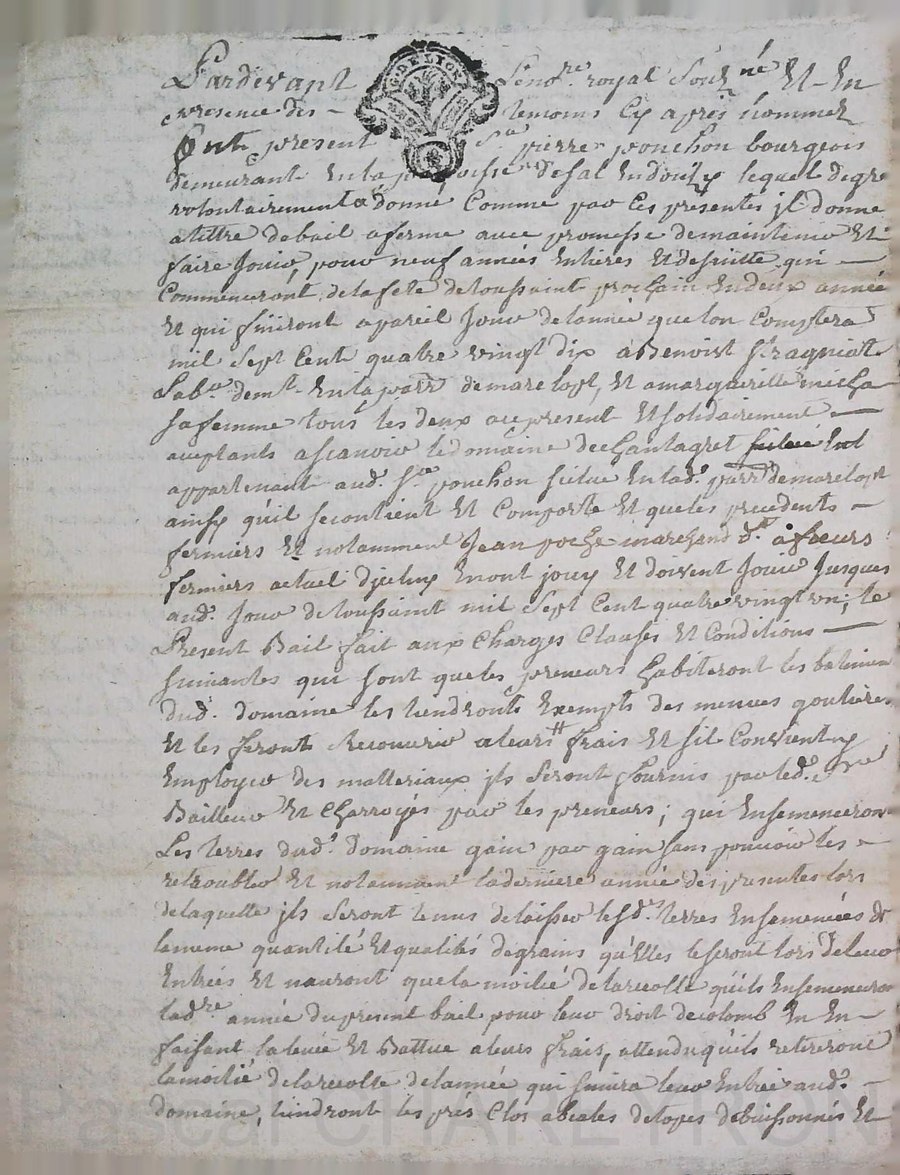 Pardevant G. DE LYON le no.re royal souz.né Et En
presence des temoins cy apres nommez
fut present S.r pierre ponchon bourgeois
demeurant En la paroisse de sal En donzy lequel de gré
volontairement a donné Comme par Ces presentes jl donne
a tittre de bail a ferme avec promesse de maintenir Et
faire Jouir, pour neuf années Entieres Et de suitte qui —
Commenceront de la fete de toussaint prochain En deux année
Et qui finiront a pareil Jour de lannée que lon Comptera
mil Sept Cent quatre vingt dix a Benoist
Lab.r dem.t En la parr. de marelopt, Et a margueritte
sa femme tous les deux acy present Et solidairement —
acceptants a scavoir le domaine de Chantagret
appartenant aud. S.r ponchon situé En lad. parr. de marelopt
ainsy quil se contient Et Comporte Et que les precedents —
fermiers Et notamment Jean marchand d.t a feurs
fermiers actuel djceluy En ont jouy Et doivent Jouir Jusques
aud. Jour de toussaint mil Sept Cent quatre vingt un; le
Present Bail fait aux Charges Clauses Et Conditions —
suivantes qui sont que les preneurs habiteront les batimens
dud. domaine les tiendronts Exempts des menues goutieres
Et les feronts Recouvrir a leurs frais Et sil Convient y
Employer des matteriaux jls seront fournis par led. s.r
Bailleur Et Charroyés par les preneurs; qui Ensemenceront
Les terres dud. Domaine gain par gain sans pouvoir les —
retroubler Et notamment la derniere année des presentes lors
de laquelle jls seront tenus de laisser les d. terres Ensemencées de
la meme quantité Et qualités de grains qu'Elles le seront lors de leur
Entrées Et n'auront que la moitié de la recolte quils Ensemenceron
lad.re année du present bail pour leur droit de colomb En En —
faisant la levée Et Battue a leurs frais, attendu qu'ils retireront
la moitié de la recolte de lannée qui suivra leur Entrée aud. —
domaine, tiendront les prés Clos de buissonnés Et